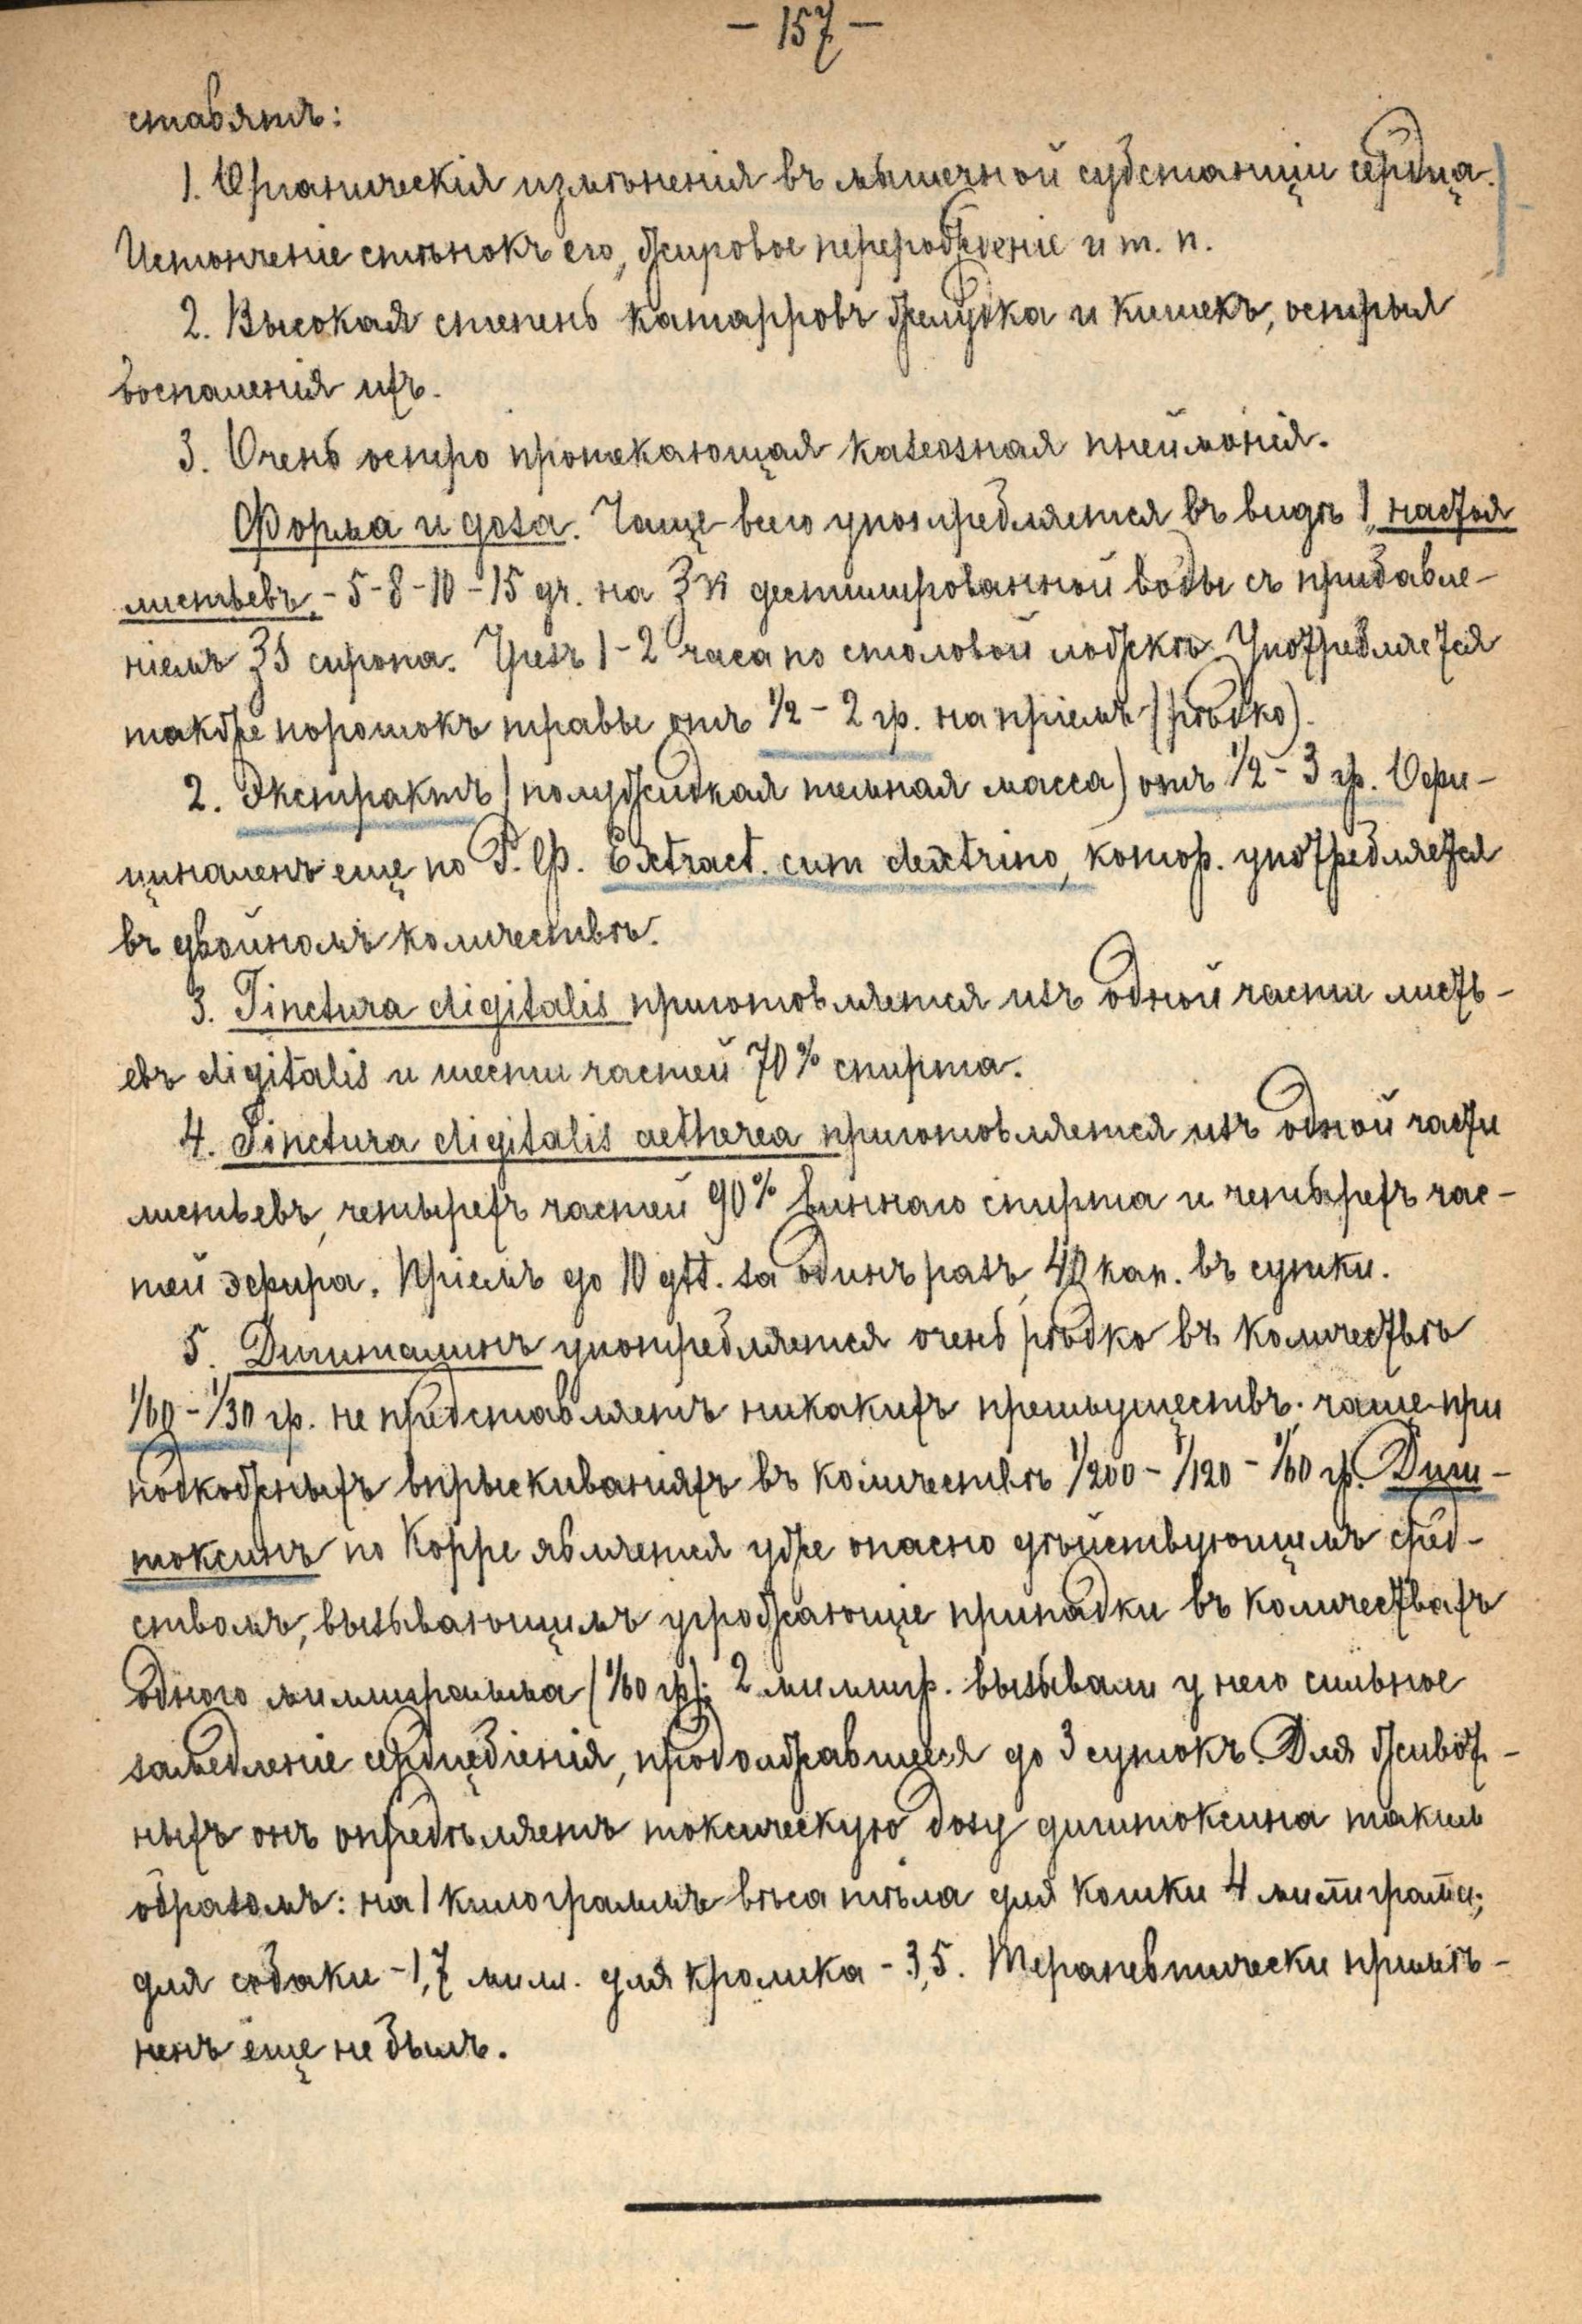 — 157 —
ставятъ:
1. Органическія измѣненія въ мышечной субстанціи сердца.
Истонченіе стѣнокъ его, жировое перерожденіе и т. п.
2. Высокая степень катарровъ желудка и кишекъ, острыя
воспаленія ихъ.
3. Очень остро протекающая казеозная пнеймонія.
Форма и доза. Чаще всего употребляется въ видѣ 1, настоя
листьевъ. - 5 - 8 - 10 - 15 gr. на ℥vi дестиллированной воды съ прибавле-
ніемъ ℥j сиропа. Чрезъ 1 - 2 часа по столовой ложкѣ. Употребляется
также порошокъ травы отъ 1/2 - 2 гр. на пріемъ (рѣдко).
2. Экстрактъ (полужидкая темная масса) отъ 1/2 - 3 гр. Офи-
циналенъ еще по Р. Ф. Extract. cum dextrino, котор. употребляется
въ двойномъ количествѣ.
3. Tinctura digitalis приготовляется изъ одной части листь-
евъ digitalis и шести частей 70% спирта.
4. Tinctura digitalis aetherea приготовляется изъ одной части
листьевъ, четырехъ частей 90% виннаго спирта и четырехъ час-
тей эфира. Пріемъ до 10 gtt. за одинъ разъ, 40 кап. въ сутки.
5. Дигиталинъ употребляется очень рѣдко въ количествѣ
1/60 - 1/30 гр. не представляетъ никакихъ преимуществъ; чаще при
подкожныхъ впрыскиваніяхъ въ количествѣ 1/200 - 1/120 - 1/60 гр. Диги-
токсинъ по Коррe является уже опасно дѣйствующимъ сред-
ствомъ, вызывающимъ угрожающіе припадки въ количествахъ
одного миллиграмма (1/60 гр); 2 миллигр. вызывали у него сильное
замедленіе сердцебіенія, продолжавшееся до 3 сутокъ. Для живот-
ныхъ онъ опредѣляетъ токсическую дозу дигитоксина такимъ
образомъ: на 1 килограммъ вѣса тѣла для кошки 4 миллиграмма;
для собаки - 1,7 милл. для кролика - 3,5. Терапевтически примѣ-
ненъ еще не былъ.